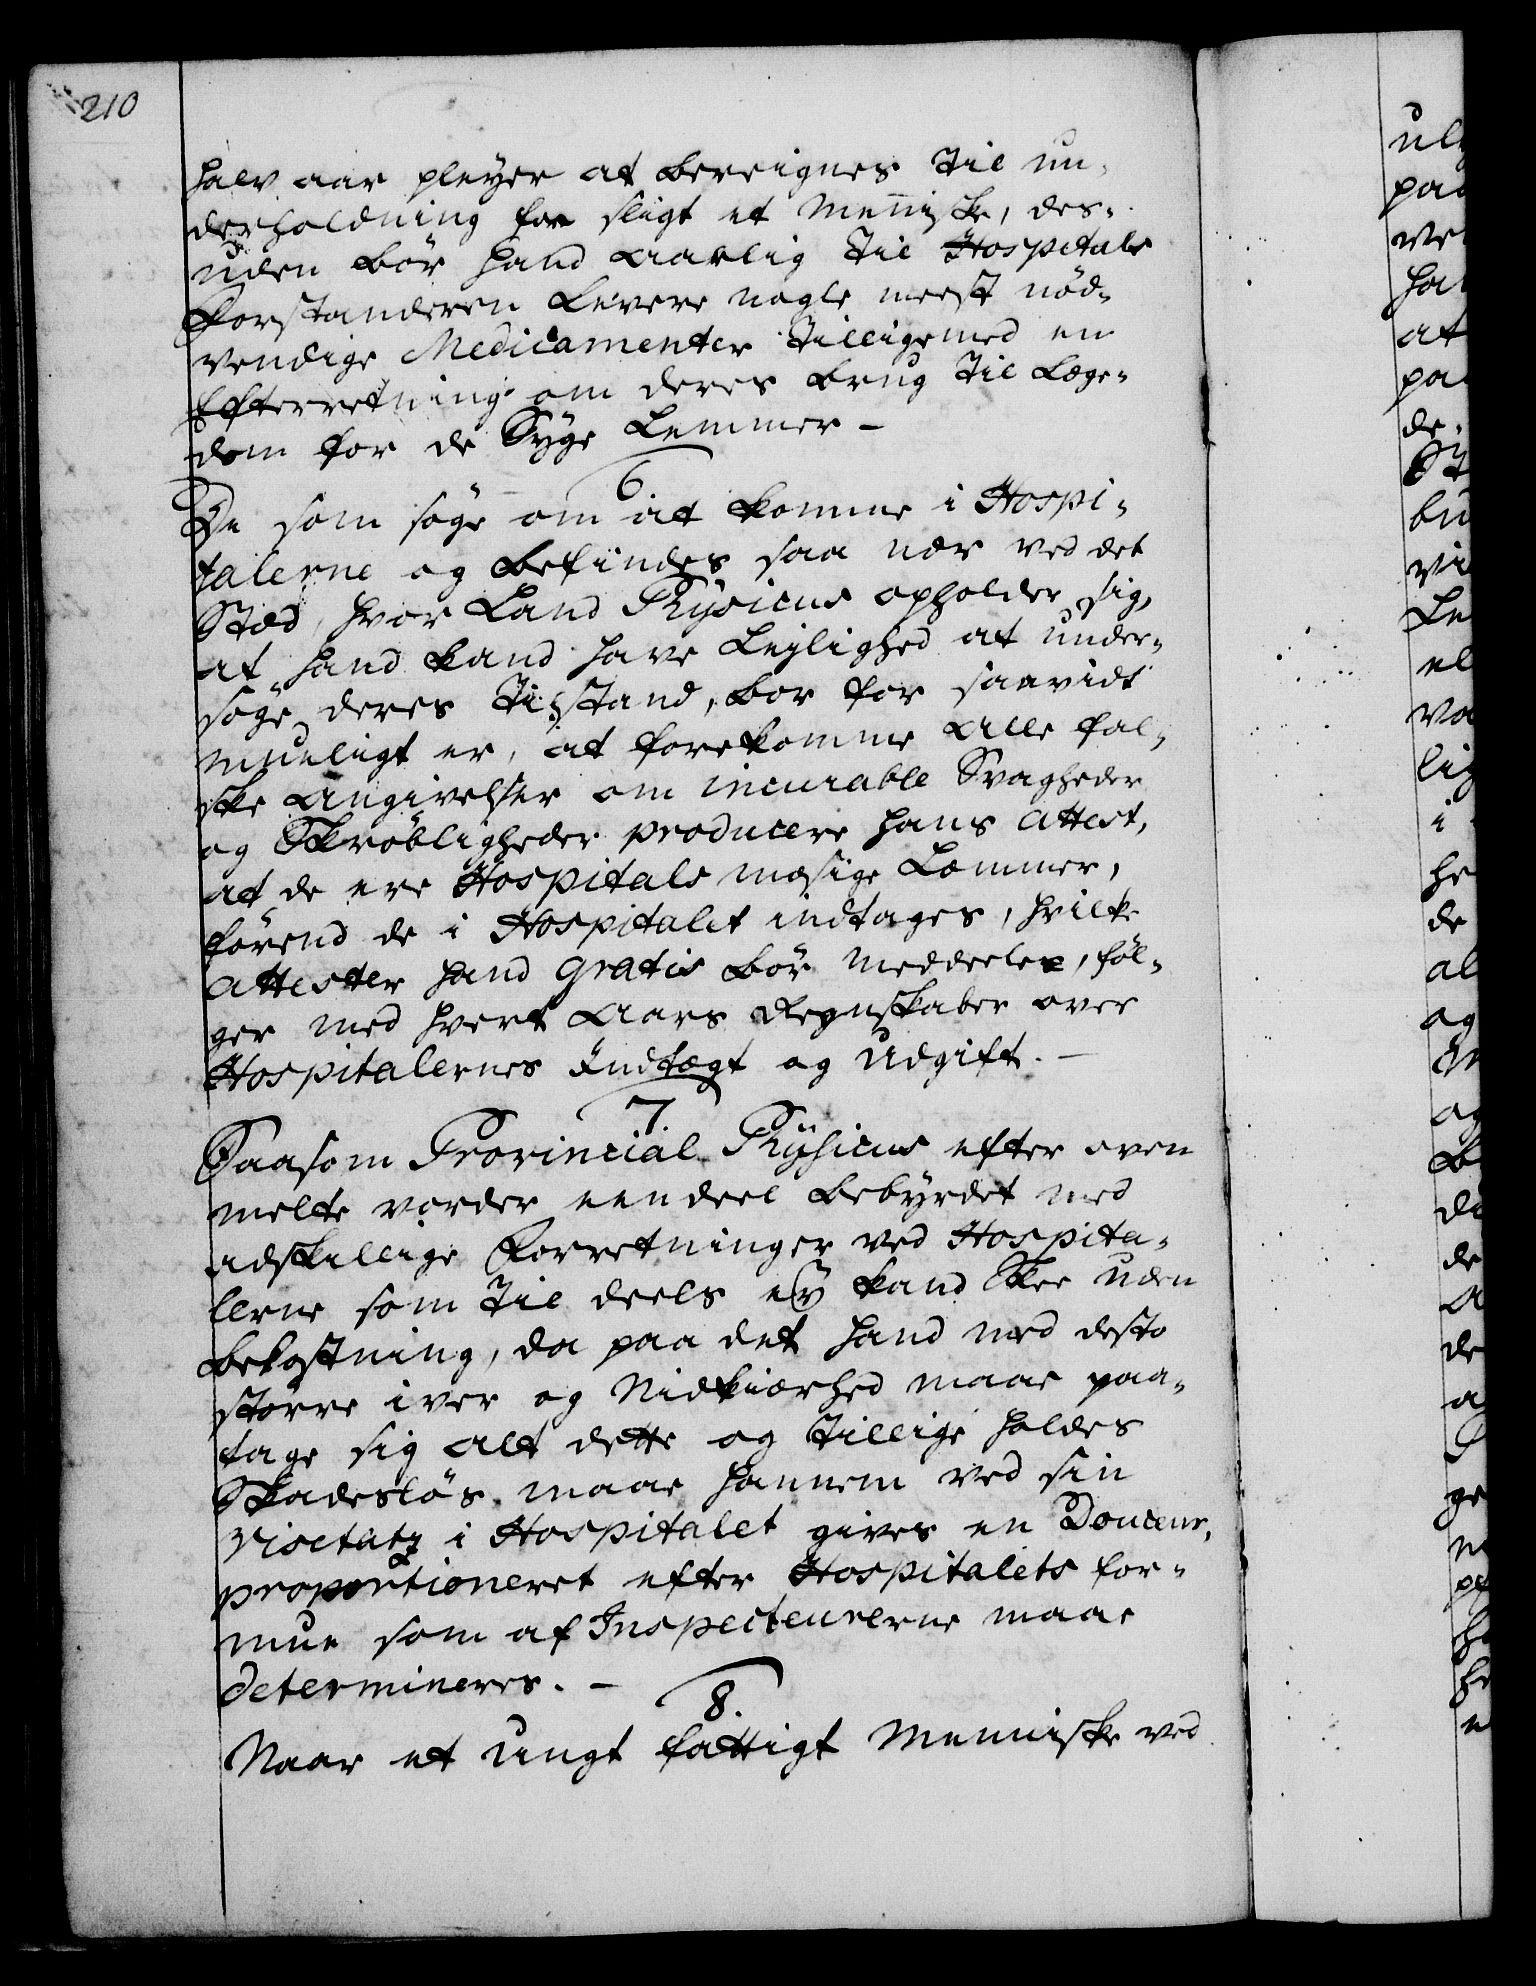 210
halv aar pleyer at bereignes til un-
derholdning for sligt et Menniske, des-
uden bør hand aarlig til Hospitals
Forstanderen levere nogle meest nöd-
vendige Medicamenter tilligemed en
Efterretning om deres brug til Læge-
dom for de Syge Lemmer -
6
De som söge om at komme i Hospi-
talerne og befindes saa nær ved det
Stæd, hvor Land Physicus opholder sig,
at hand kand have Lejlighed at under-
söge deres Tilstand, bör for saavidt
mueligt er, at forekomme alle fal-
ske angivelser om incurable Svagheder
og Skröbligheder producere hans attest,
at de ere Hospitals mæsige Lemmer,
förend de i Hospitalet indtages, hvilke
attester hand gratis bör meddeele, föl-
ger med hvert aars Regnskaber over
Hospitalernes Indtægt og udgift. -
7.
Saasom Provincial Physicus efter oven
melte vorder eendeel bebyrdet med
adskillige Forretninger ved Hospita-
lerne som til deels ey kand skee uden
bekostning, da paa det hand med desto
större iver og Nidkiærhed maae paa-
tage sig alt dette og tillige holdes
Skadeslös, maae hannem ved sin
visitatz i Hospitalet gives en Douceur,
proportioneret efter Hospitalets for-
mue som af Inspecteurerne maae
determineres. -
8.
Naar et ungt fattigt Menniske ved